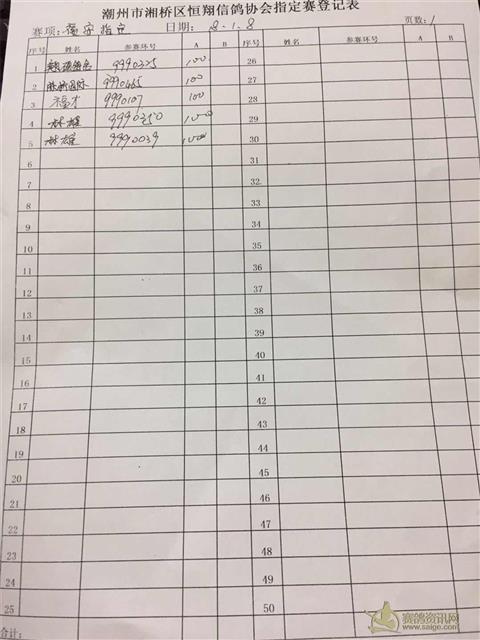 潮州市湘桥区恒翔信鸽协会指定赛登记表
赛项: 指定 日期: 18.1.8 页数: 1
序号 姓名 参赛环号 A B 序号 姓名 参赛环号 A B
1 9990325 100 26
2 9990465 100 27
3 福才 9990107 100 28
4 林雄 9990350 100 29
5 林雄 9990039 100 30
6 31
7 32
8 33
9 34
10 35
11 36
12 37
13 38
14 39
15 40
16 41
17 42
18 43
19 44
20 45
21 46
22 47
23 48
24 49
25 50
合计:
赛鸽资讯网
www.saige.com